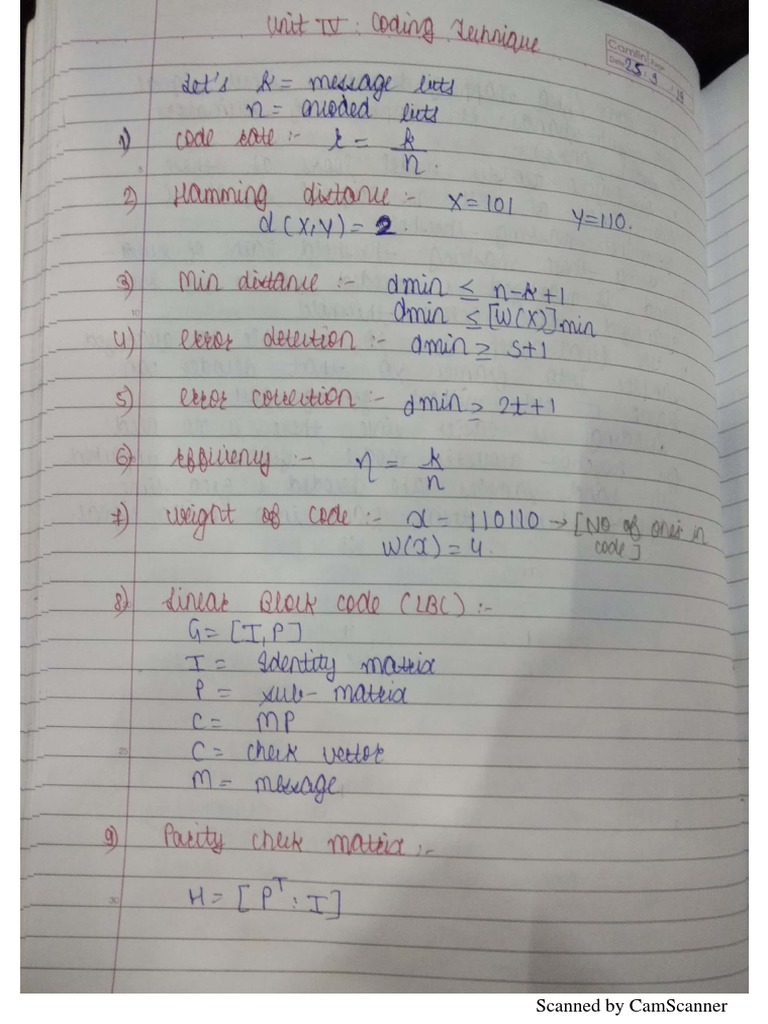 Unit IV : Coding Technique
Camlin Page
Date 25 . 9 . 19
Let's k = message bits
n = encoded bits
1) code rate :- r = k/n.
2) Hamming distance :- X=101 Y=110.
d(X,Y) = 2.
3) Min distance :- dmin ≤ n-k+1
dmin ≤ [W(X)]min
4) error detection :- dmin ≥ S+1
5) error correction :- dmin ≥ 2t+1
6) Efficiency :- η = k/n
7) Weight of code :- x = 110110 → [No of ones in
code]
W(X) = 4.
8) Linear Block code (LBC) :-
G = [I, P]
I = Identity matrix
P = sub-matrix
C = MP
C = check vector
M = message
9) Parity check matrix :-
H = [P^T : I]
Scanned by CamScanner